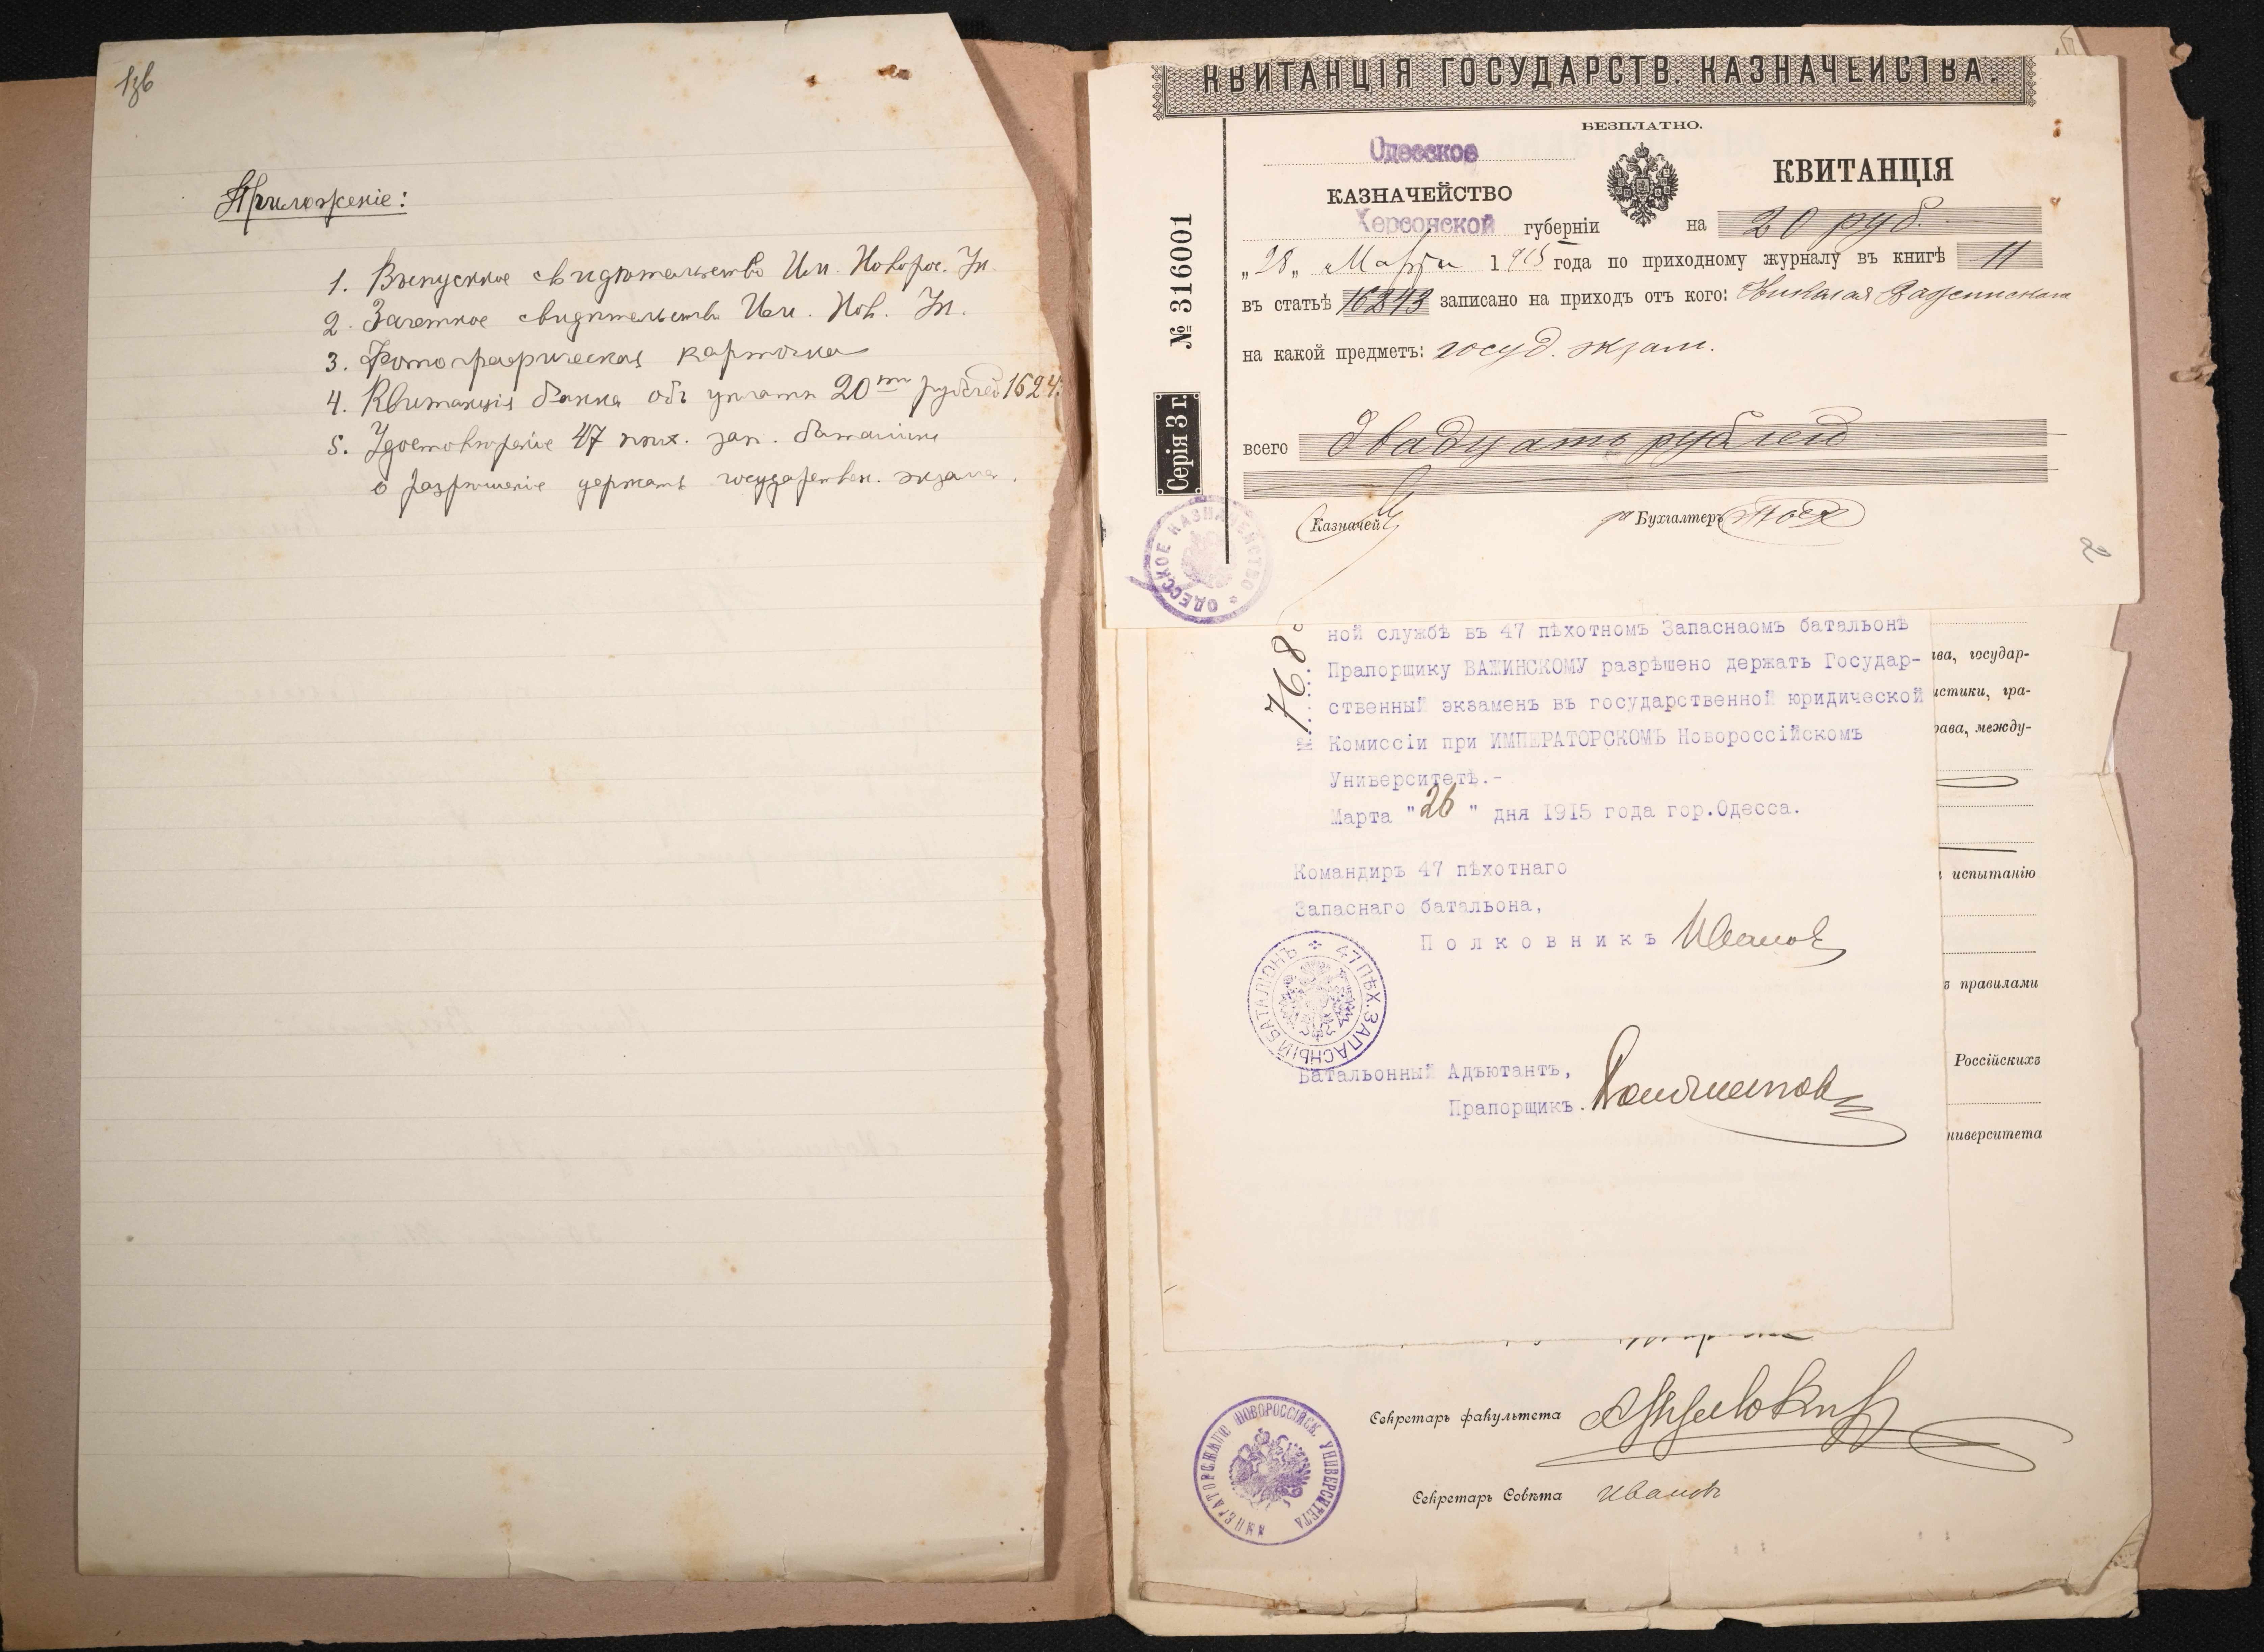 1зв
Приложеніе:
1. Выпускное свидѣтельство Им. Новорос. Ун.
2. Зачетное свидѣтельство Им. Нов. Ун.
3. Фотографическая карточка
4. Квитанція банка объ уплатѣ 20 ти рублей
5. Удостовѣреніе 47 пѣх. зап. баталіона
о разрѣшеніе держать государствен. экзамен.
КВИТАНЦІЯ ГОСУДАРСТВ. КАЗНАЧЕЙСТВА.
БЕЗПЛАТНО.
Одесское
КАЗНАЧЕЙСТВО
КВИТАНЦІЯ
Херсонской губерніи на 20 руб.
„28„ Марта 1915 года по приходному журналу въ книгѣ 11
въ статьѣ 16243 записано на приходъ отъ кого: Николая Важинскаго
на какой предметъ: госуд. экзам.
всего Двадцать рублей
Казначей
Бухгалтеръ
№ 316001
Серія 3 г.
ОДЕССКОЕ КАЗНАЧЕЙСТВО
2
№ 768
ной службѣ въ 47 пѣхотномъ Запаснаомъ батальонѣ
Прапорщику ВАЖИНСКОМУ разрѣшено держать Государ-
ственный экзаменъ въ государственной юридической
Комиссіи при ИМПЕРАТОРСКОМЪ Новороссійскомъ
Университетѣ.-
Марта "26" дня 1915 года гор.Одесса.
Командиръ 47 пѣхотнаго
Запаснаго батальона,
Полковникъ Иванов
47 ПѢХ. ЗАПАСНЫЙ БАТАЛІОНЪ
Батальонный Адъютантъ,
Прапорщикъ.
ава, государ-
истики, гра-
рава, между-
испытанію
ъ правилами
Россійскихъ
ниверситета
Секретарь факультета
Секретарь Совѣта Ивановъ
ИМПЕРАТОРСКАГО НОВОРОССІЙСК. УНИВЕРСИТЕТА